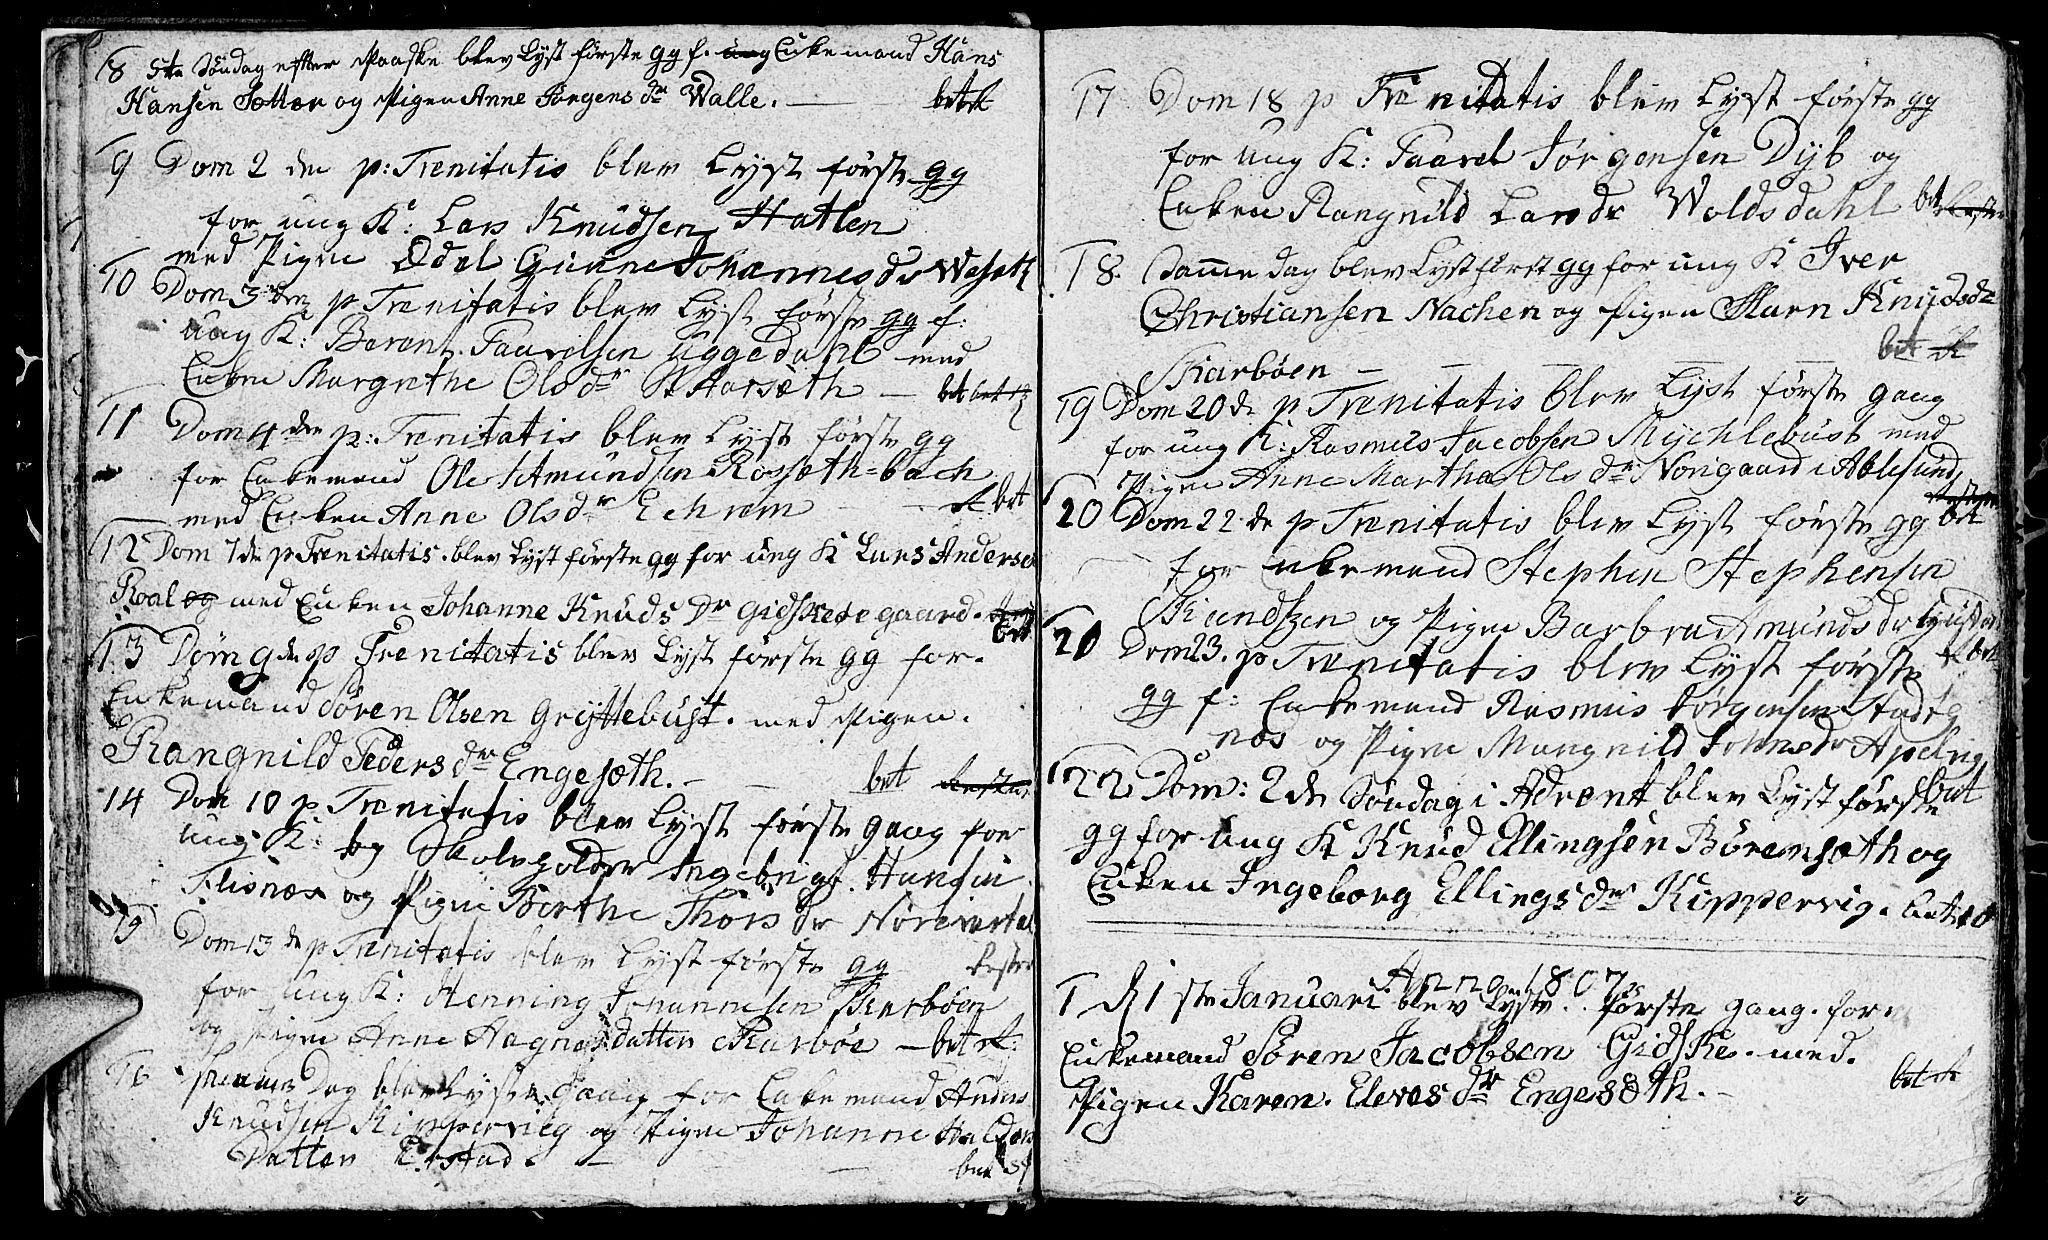 8 5te Söndag efter Paaske blev Lyst förste gg f. ung Enkemand Hans
Hansen Sætter og Pigen Anne Jörgens dr Walle. — bet
9 Dom 2 den p: Trenitatis blev Lyst förste gg
for ung K: Lars Knudsen Hatlen
med Pigen Odel Gunne Johannes dr Waseth
10 Dom 3 den p Trenitatis blev Lyst förste gg f:
ung K: Beren Taarelsen Uggedahl med
Enken Margrethe Ols dr Harsæth — bet
11 Dom 4 den p: Trenitatis blev Lyst förste gg
for Enkemand Ole Amundsen Rosseth=bach
med Enken Anne Olsdr Echrem bet
12 Dom 7 de p Trenitatis. blev Lyst förste gg for ung K Lars Andersen
Roal og med Enken Johanne Knuds Dr Gidskeregaard. bet
13 Dom 9 de p Trenitatis blev Lyst förste gg for.
Enkemand Sören Olsen Gryttebust. med Pigen.
Rangnild Peders dr Engesæth. — bet
14 Dom 10 p Trenitatis blev Lyst förste gang for
ung K: og Skoleholder Ingebrigt. Hansen
Flisnæs og Pigen Berthe Thors dr Nöre
15 Dom 13 de p Trenitatis blev Lyst förste gg
for ung K: Henning Johannesen Skarböen
og Pigen Anne Magnes datter Skarböe — bet
16 Samme Dag blev Lyst gang for Enkemand Anders
Knudsen Kippervieg og Pigen Johanne Halders
Datter — — bet
17 Dom 18 p Trenitatis blev Lyst förste gg
for ung K: Taarel Jörgensen Dyb og
Enken Rangnild Lars dr Woldsdahl bet
18. Samme dag blev Lyst först gg for ung K Iver
Christiansen Nachen og Pigen Marn Knudsdr
bet
Skarböen — — — —
19 Dom 20 de p Trenitatis blev Lyst förste gang
for ung K: Rasmus Jacobsen Mychlebust med
Pigen Anne Martha Ols dr Norigaard i Ablesund
20 Dom 22 de p Trenitatis blev Lyst förste gg bet
for enkemand Stephen Stephensen
og Pigen Barbra Amunds dr
20 Dom 23. p Trenitatis blev Lyst förste bet
gg f: Enkemand Rasmus Jörgensen Stadtg
næs og Pigen Mangnild Johns dr
22 Dom: 2 de Söndag i Advent blev Lyst förste bet
gg for ung K Knud Ellingsen Böremsæth og
Enken Ingeborg Ellings dr Kippervig. bet
Anno 1807
1 D 1 ste Januari blev Lyst.. förste gang. for
Enkemand Sören Jacobsen Gidske. med.
Pigen Karen. Elevos dr Engesöth. — bet